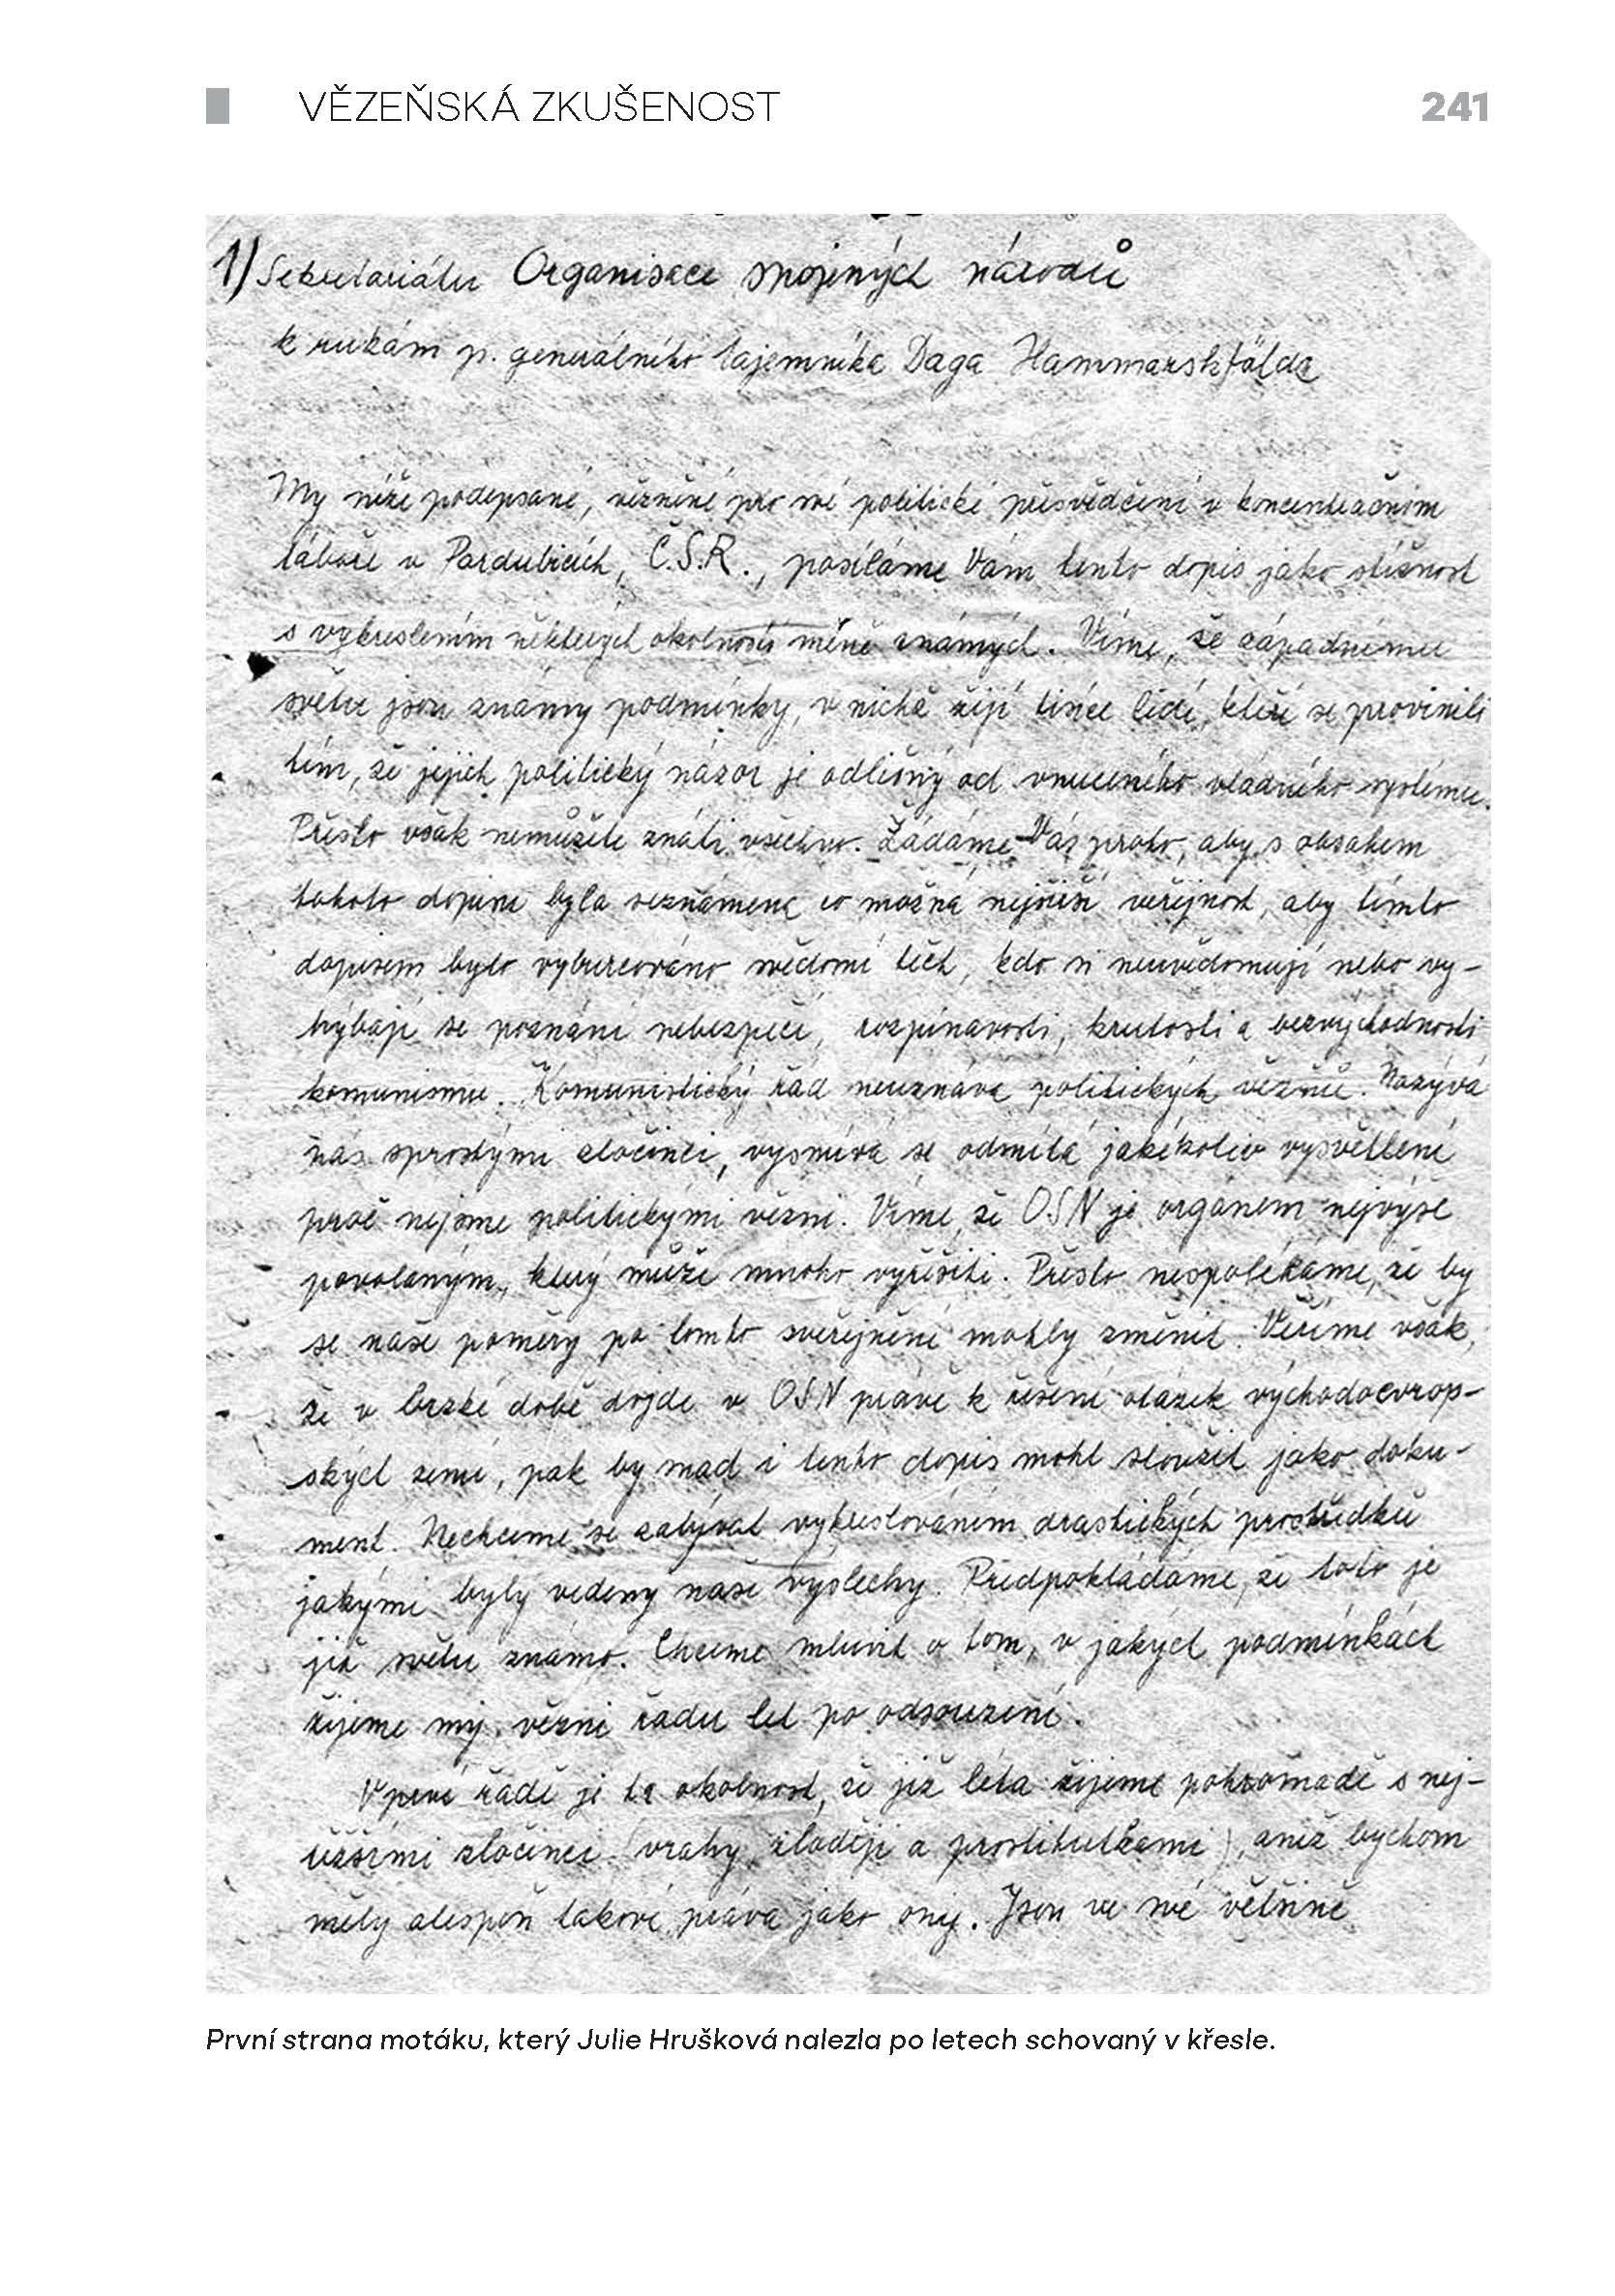 VĚZEŇSKÁ ZKUŠENOST
241
1) Sekretariátu Organisace spojených národů
k rukám p. generálního tajemníka Daga Hammarskjölda
My níže podepsané, vězněné pro své politické přesvědčení v koncentračním
táboře v Pardubicích, Č.S.R., posíláme Vám tento dopis jako stížnost
s vykreslením některých okolností méně známých. Víme, že západnímu
světu jsou známy podmínky, v nichž žijí tisíce lidí, kteří se provinili
tím, že jejich politický názor je odlišný od vnuceného vládního systému.
Přesto však nemůžete znáti všechno. Žádáme Vás proto, aby s obsahem
tohoto dopisu byla seznámena co možná nejširší veřejnost, aby tímto
dopisem bylo vyburcováno svědomí těch, kdo si neuvědomují nebo vy-
hýbají se poznání nebezpečí, rozpínavosti, krutosti a bezvýchodnosti
komunismu. Komunistický řád neuznává politických vězňů. Nazývá
nás sprostými zločinci, vysmívá se odmítá jakékoliv vysvětlení
proč nejsme politickými vězni. Víme, že OSN je orgánem nejvýše
povolaným, který může mnoho vyřešiti. Přesto nespoléháme, že by
se naše poměry po tomto zveřejnění mohly změnit. Věříme však,
že v brzké době dojde v OSN právě k řešení otázek východoevrop-
ských zemí, pak by snad i tento dopis mohl sloužit jako doku-
ment. Nechceme se zabývat vykreslováním drastických prostředků
jakými byly vedeny naše výslechy. Předpokládáme, že toto je
již světu známo. Chceme mluvit o tom, v jakých podmínkách
žijeme my, vězni řadu let po odsouzení.
V prvé řadě je to okolnost, že již léta žijeme pohromadě s nej-
těžšími zločinci (vrahy, zloději a prostitutkami), aniž bychom
měly alespoň taková práva jako oni. Jsou ve své většině
První strana motáku, který Julie Hrušková nalezla po letech schovaný v křesle.